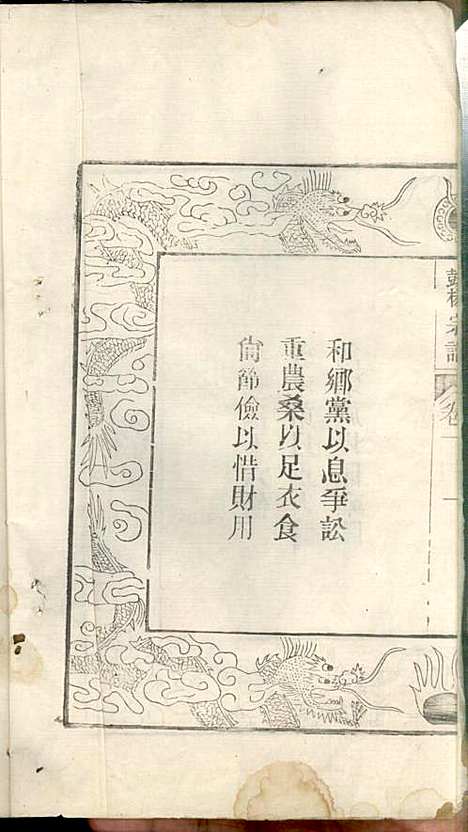 彭城宗譜 卷一
和鄉黨以息爭訟
重農桑以足衣食
尙節儉以惜財用